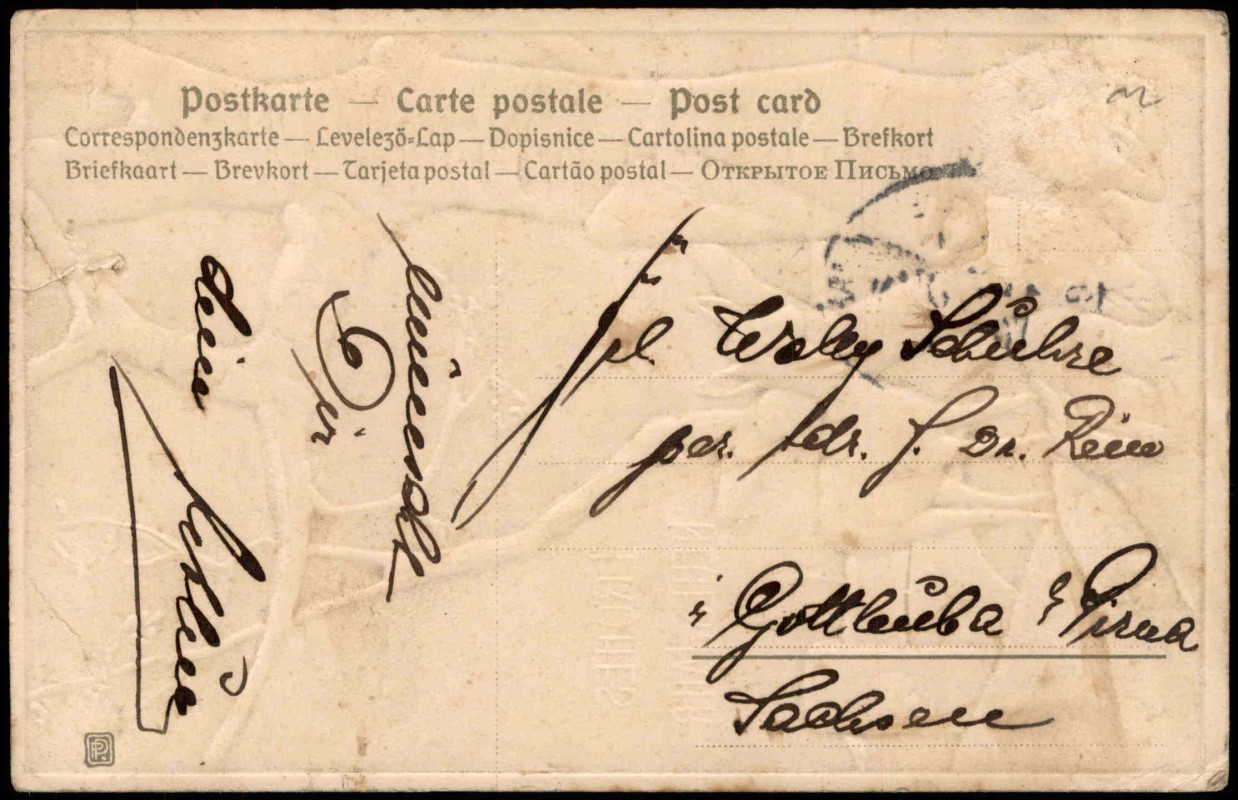 Postkarte — Carte postale — Post card
Correspondenzkarte — Levelező-Lap — Dopisnice — Cartolina postale — Brefkort
Briefkaart — Brevkort — Tarjeta postal — Cartão postal — Открытое Письмо
wünscht
Dir
dein
Frl. Schulze
per Adr. f. Dr.
Gottleuba Pirna
Sachsen